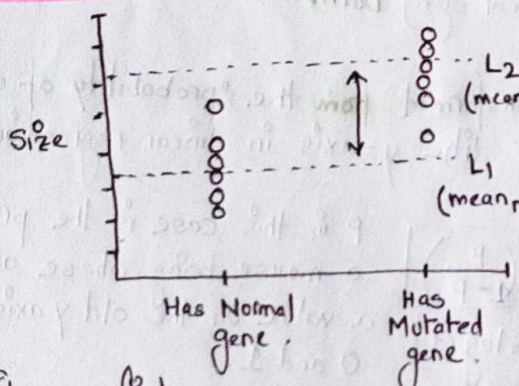 Size
L2
(mean
L1
(mean
Has Normal
gene.
Has
Mutated
gene.